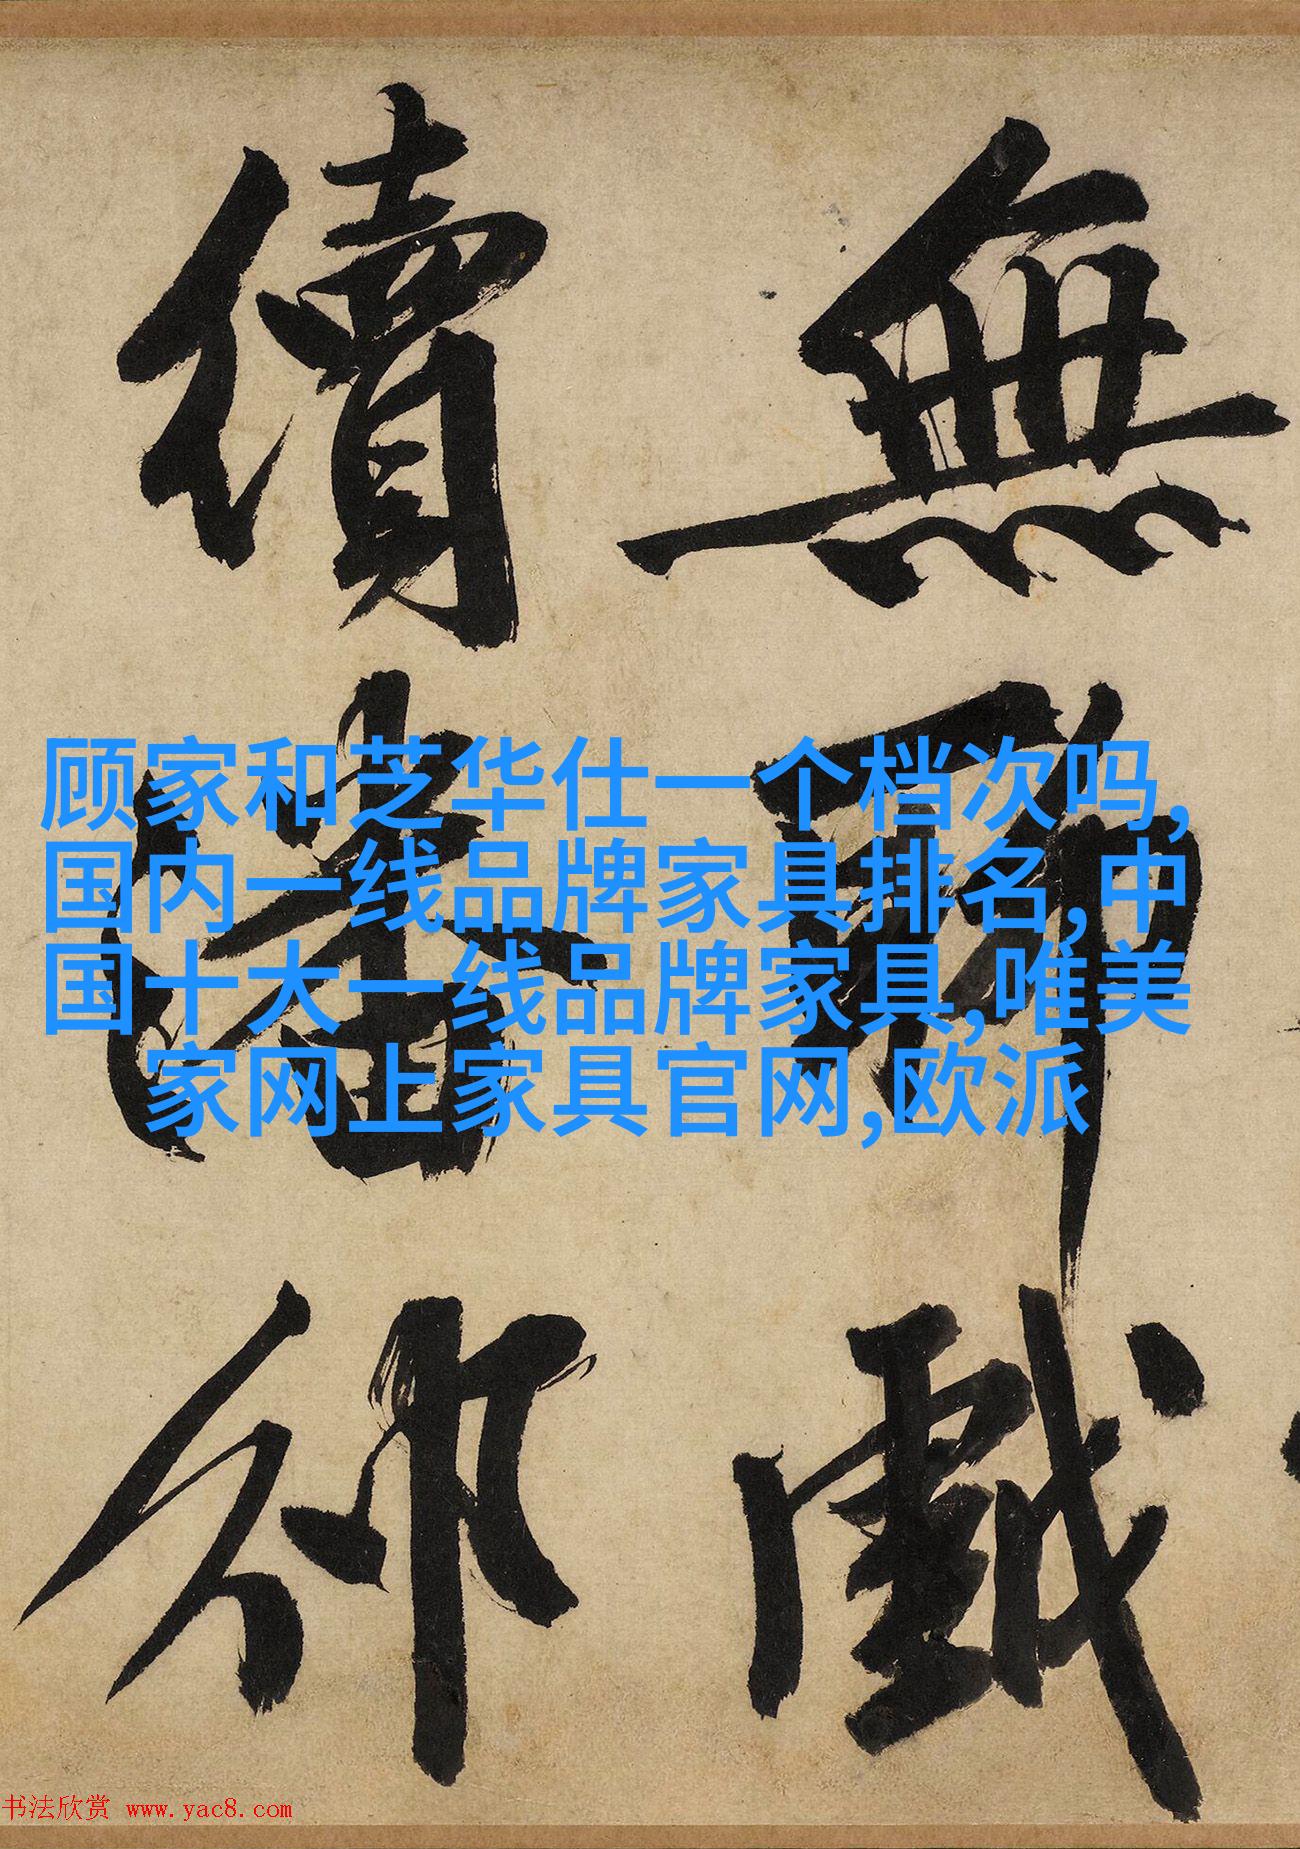 無
戲
續
顾家和芝华仕一个档次吗,
国内一线品牌家具排名,中
国十大一线品牌家具,唯美
家网上家具官网,欧派
书法欣赏 www.yac8.com